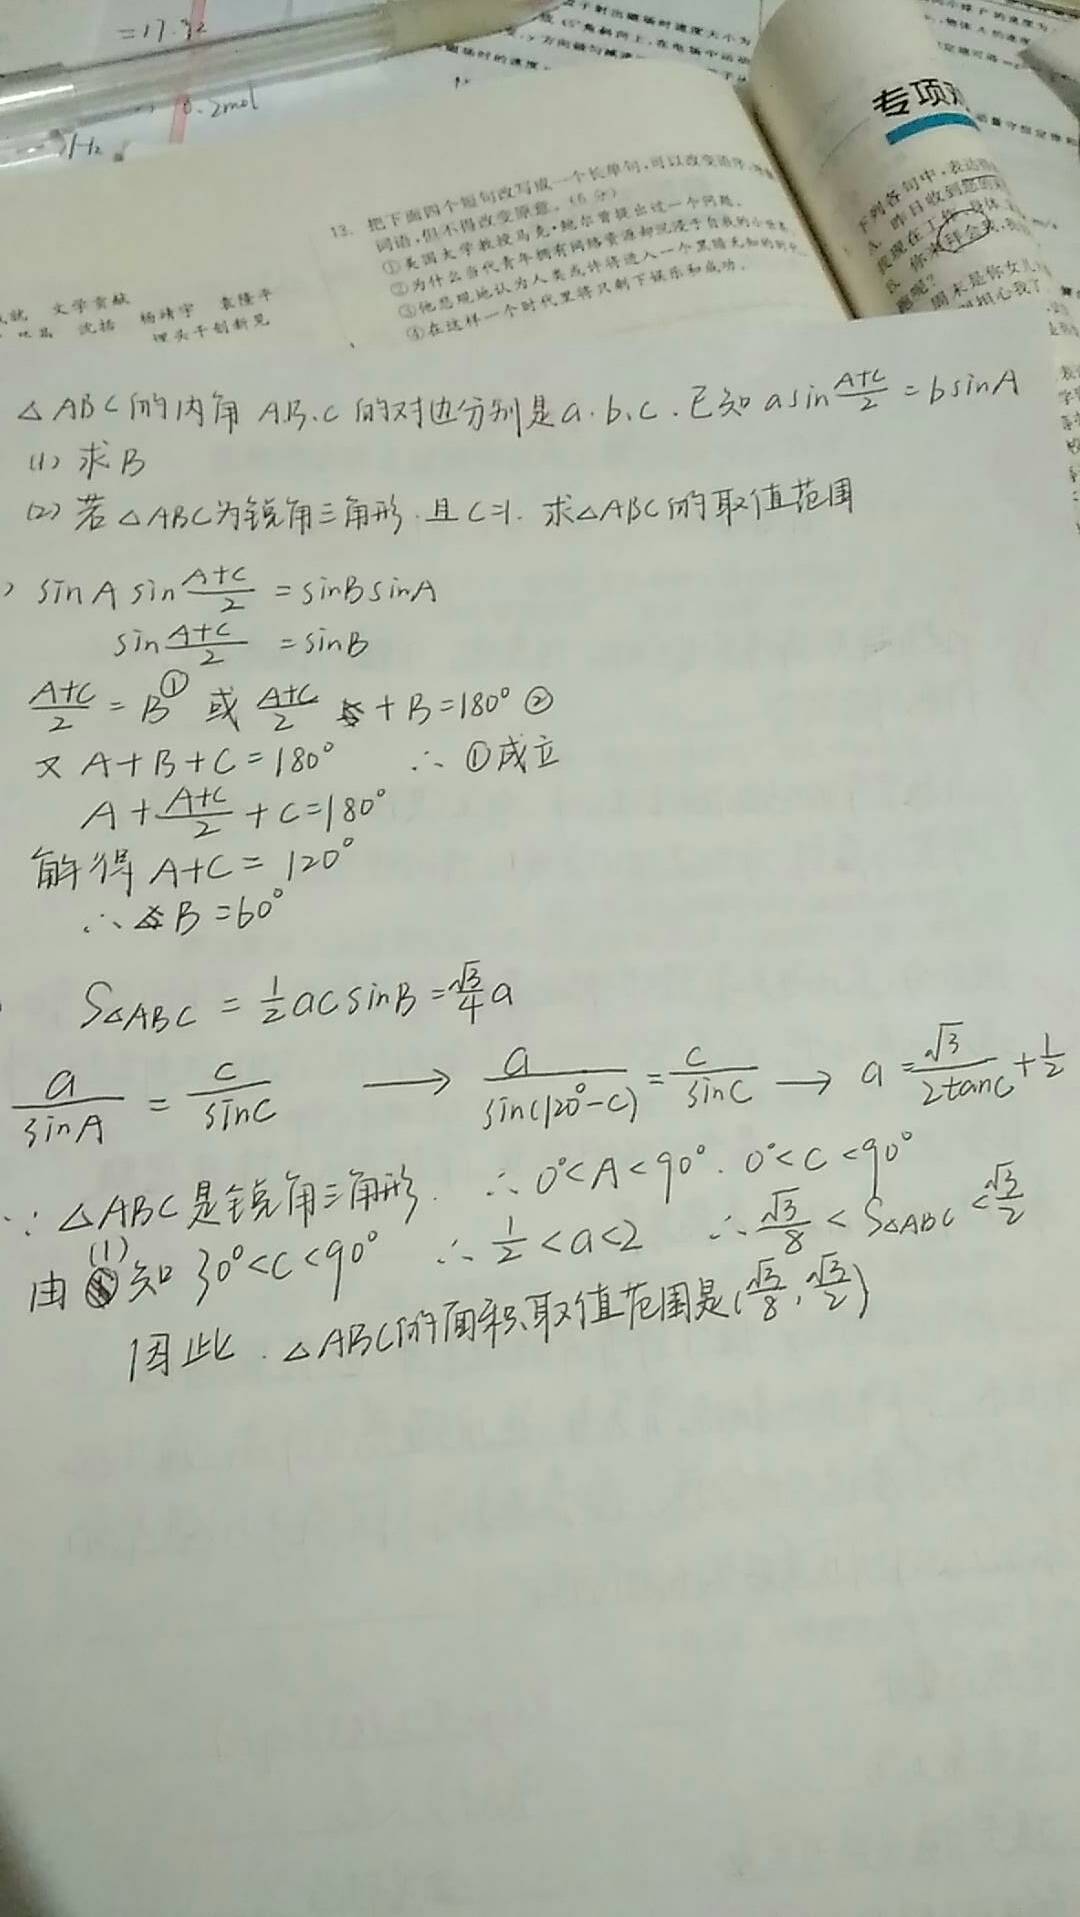 =17.92
0.2mol
H₂
专项
13. 把下面四个短句改写成一个长单句,可以改变语序、
词语,但不得改变原意。(6分)
①美国大学教授马克·鲍尔曾提出过一个问题。
②为什么当代青年拥有网络资源却沉浸于自我的小世界
③他悲观地认为人类或许将进入一个黑暗无知的时代
④在这样一个时代里将只剩下娱乐和成功。
文学贡献
沈括 杨靖宇 袁隆平
埋头干创新见
下列各句中,表达得
A. 昨日收到您的
我现在工作 身体
B. 你来拜会我,我
周末是你女儿
△ABC的内角 A.B.C 的对边分别是a.b.c.已知 asin(A+C)/2=bsinA
(1) 求B
(2) 若△ABC为锐角三角形.且C=1. 求△ABC的取值范围
) sinA sin(A+C)/2 = sinBsinA
sin(A+C)/2 = sinB
(A+C)/2 = B① 或 (A+C)/2 + B=180° ②
又 A+B+C=180° ∴ ①成立
A+(A+C)/2+C=180°
解得 A+C= 120°
∴ B=60°
S△ABC = 1/2 acsinB=√3/4 a
a/sinA = c/sinC → a/sin(120°-C) = c/sinC → a=√3/2tanC+1/2
∵ △ABC是锐角三角形. ∴ 0°<A<90°. 0°<C<90°
由(1)知 30°<C<90° ∴ 1/2<a<2 ∴ √3/8 < S△ABC <√3/2
因此. △ABC的面积取值范围是(√3/8, √3/2)